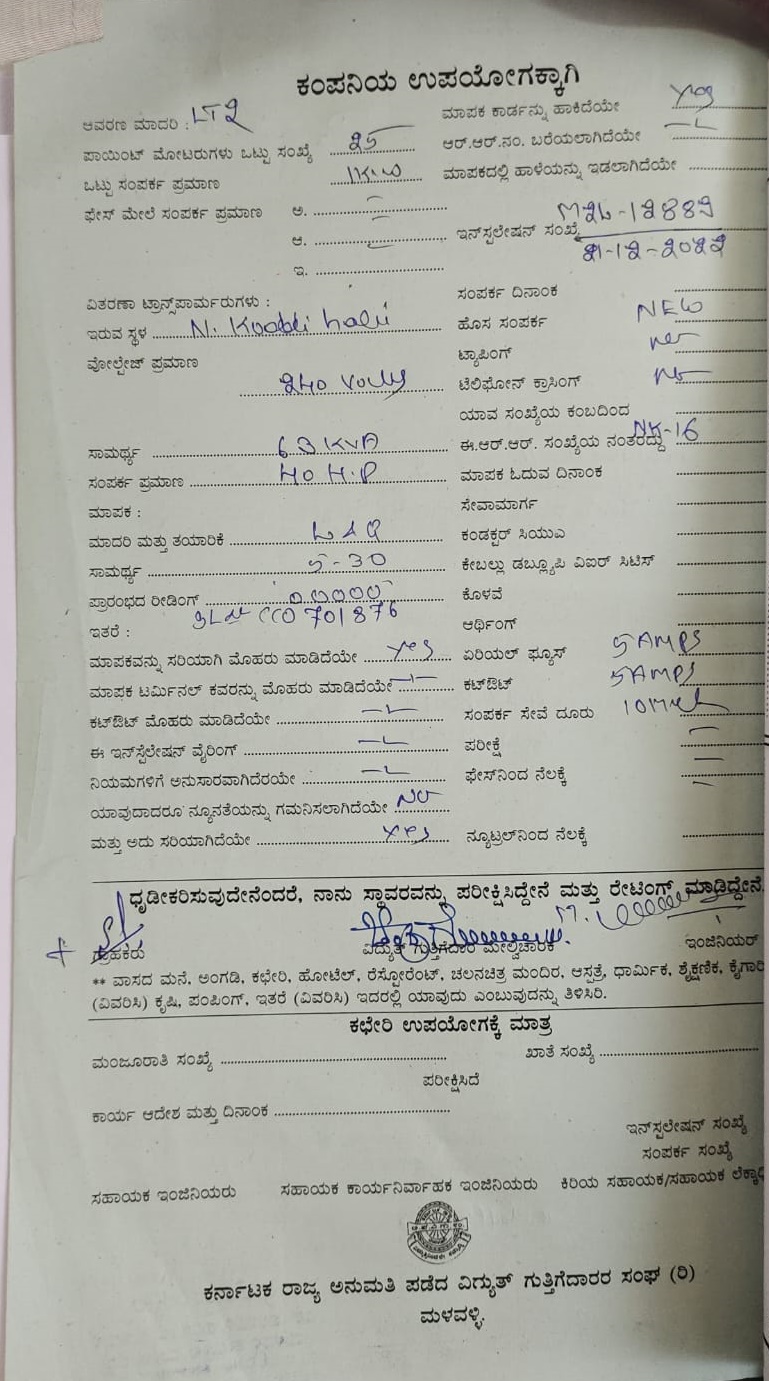 ಕಂಪನಿಯ ಉಪಯೋಗಕ್ಕಾಗಿ
ಆವರಣ ಮಾದರಿ : LT2
ಮಾಪಕ ಕಾರ್ಡನ್ನು ಹಾಕಿದೆಯೇ Yes
ಪಾಯಿಂಟ್ ಮೋಟರುಗಳು ಒಟ್ಟು ಸಂಖ್ಯೆ 25
ಆರ್.ಆರ್.ನಂ. ಬರೆಯಲಾಗಿದೆಯೇ
ಒಟ್ಟು ಸಂಪರ್ಕ ಪ್ರಮಾಣ 1KW
ಮಾಪಕದಲ್ಲಿ ಹಾಳೆಯನ್ನು ಇಡಲಾಗಿದೆಯೇ
ಫೇಸ್ ಮೇಲೆ ಸಂಪರ್ಕ ಪ್ರಮಾಣ ಅ.
ಆ.
ಇನ್‌ಸ್ಪಲೇಷನ್ ಸಂಖ್ಯೆ M2L-12889
21-12-2022
ಇ.
ವಿತರಣಾ ಟ್ರಾನ್ಸ್‌ಪಾರ್ಮರುಗಳು :
ಸಂಪರ್ಕ ದಿನಾಂಕ
ಇರುವ ಸ್ಥಳ N.
ಹೊಸ ಸಂಪರ್ಕ NEW
ವೋಲ್ಟೇಜ್ ಪ್ರಮಾಣ 240 Volts
ಟ್ಯಾಪಿಂಗ್ no
ಟೆಲಿಫೋನ್ ಕ್ರಾಸಿಂಗ್ no
ಯಾವ ಸಂಖ್ಯೆಯ ಕಂಬದಿಂದ
ಸಾಮರ್ಥ್ಯ 63 KVA
ಈ.ಆರ್.ಆರ್. ಸಂಖ್ಯೆಯ ನಂತರದ್ದು NK-16
ಸಂಪರ್ಕ ಪ್ರಮಾಣ 40 H.P
ಮಾಪಕ ಓದುವ ದಿನಾಂಕ
ಮಾಪಕ :
ಸೇವಾಮಾರ್ಗ
ಮಾದರಿ ಮತ್ತು ತಯಾರಿಕೆ
ಕಂಡಕ್ಟರ್ ಸಿಯುಎ
ಸಾಮರ್ಥ್ಯ 5-30
ಕೇಬಲ್ಲು ಡಬ್ಲ್ಯೂಪಿ ವಿಐರ್ ಸಿಟಿಸ್
ಪ್ರಾರಂಭದ ರೀಡಿಂಗ್ 00000
ಕೊಳವೆ
ಇತರೆ : 701876
ಆರ್ಥಿಂಗ್
ಮಾಪಕವನ್ನು ಸರಿಯಾಗಿ ಮೊಹರು ಮಾಡಿದೆಯೇ Yes
ಏರಿಯಲ್ ಫ್ಯೂಸ್ 5 AMPS
ಮಾಪಕ ಟರ್ಮಿನಲ್ ಕವರನ್ನು ಮೊಹರು ಮಾಡಿದೆಯೇ
ಕಟ್‌ಔಟ್ 5 AMPS
ಕಟ್‌ಔಟ್ ಮೊಹರು ಮಾಡಿದೆಯೇ
ಸಂಪರ್ಕ ಸೇವೆ ದೂರು
ಈ ಇನ್‌ಸ್ಪೆಲೇಷನ್ ವೈರಿಂಗ್
ಪರೀಕ್ಷೆ
ನಿಯಮಗಳಿಗೆ ಅನುಸಾರವಾಗಿದೆರಯೇ
ಫೇಸ್‌ನಿಂದ ನೆಲಕ್ಕೆ
ಯಾವುದಾದರೂ ನ್ಯೂನತೆಯನ್ನು ಗಮನಿಸಲಾಗಿದೆಯೇ NO
ಮತ್ತು ಅದು ಸರಿಯಾಗಿದೆಯೇ Yes
ನ್ಯೂಟ್ರಲ್‌ನಿಂದ ನೆಲಕ್ಕೆ
ಧೃಡೀಕರಿಸುವುದೇನೆಂದರೆ, ನಾನು ಸ್ಥಾವರವನ್ನು ಪರೀಕ್ಷಿಸಿದ್ದೇನೆ ಮತ್ತು ರೇಟಿಂಗ್ ಮಾಡಿದ್ದೇನೆ.
ಗ್ರಾಹಕರು ವಿದ್ಯುತ್ ಗುತ್ತಿಗೆದಾರ ಮೇಲ್ವಿಚಾರಕ ಇಂಜಿನಿಯರ್
** ವಾಸದ ಮನೆ, ಅಂಗಡಿ, ಕಛೇರಿ, ಹೋಟೆಲ್, ರೆಸ್ಟೋರೆಂಟ್, ಚಲನಚಿತ್ರ ಮಂದಿರ, ಆಸ್ಪತ್ರೆ, ಧಾರ್ಮಿಕ, ಶೈಕ್ಷಣಿಕ, ಕೈಗಾರಿ
(ವಿವರಿಸಿ) ಕೃಷಿ, ಪಂಪಿಂಗ್, ಇತರೆ (ವಿವರಿಸಿ) ಇದರಲ್ಲಿ ಯಾವುದು ಎಂಬುವುದನ್ನು ತಿಳಿಸಿರಿ.
ಕಛೇರಿ ಉಪಯೋಗಕ್ಕೆ ಮಾತ್ರ
ಮಂಜೂರಾತಿ ಸಂಖ್ಯೆ
ಖಾತೆ ಸಂಖ್ಯೆ
ಪರೀಕ್ಷಿಸಿದೆ
ಕಾರ್ಯ ಆದೇಶ ಮತ್ತು ದಿನಾಂಕ
ಇನ್‌ಸ್ಪಲೇಷನ್ ಸಂಖ್ಯೆ
ಸಂಪರ್ಕ ಸಂಖ್ಯೆ
ಸಹಾಯಕ ಇಂಜಿನಿಯರು ಸಹಾಯಕ ಕಾರ್ಯನಿರ್ವಾಹಕ ಇಂಜಿನಿಯರು ಕಿರಿಯ ಸಹಾಯಕ/ಸಹಾಯಕ ಲೆಕ್ಕಾಧಿ
ಕರ್ನಾಟಕ ರಾಜ್ಯ ಅನುಮತಿ ಪಡೆದ ವಿದ್ಯುತ್ ಗುತ್ತಿಗೆದಾರರ ಸಂಘ (ರಿ)
ಮಳವಳ್ಳಿ.